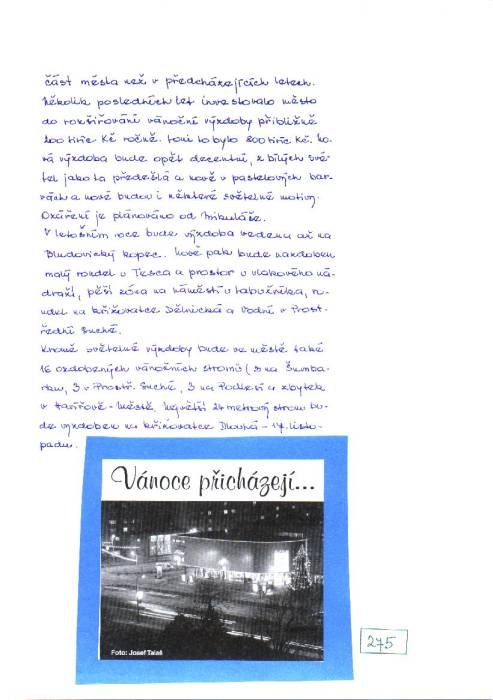 část města než v předcházejících letech.
Několik posledních let investovalo město
do rozšiřování vánoční výzdoby přibližně
200 tisíc Kč ročně. Loni to bylo 800 tisíc Kč. No-
vá výzdoba bude opět decentní, z bílých svě-
tel jako ta předešlá a nově v pastelových bar-
vách a nové budou i některé světelné motivy.
Ozáření je plánováno od Mikuláše.
V letošním roce bude výzdoba vedena až na
Bludovický kopec. Nově pak bude nazdoben
malý rondel u Tesca a prostor u vlakového ná-
draží, pěší zóna na náměstí u Labužníka, ro-
ndel na křižovatce Dělnická a Vodní v Prost-
řední Suché.
Kromě světelné výzdoby bude ve městě také
16 ozdobených vánočních stromů (5 na Šumba-
rku, 3 v Prostř. Suché, 3 na Podlesí a zbytek
v Havířově-Městě. Největší 24 metrový strom bu-
de vyzdoben na křižovatce Dlouhá - 17. listo-
padu.
Vánoce přicházejí...
Foto: Josef Talaš
275